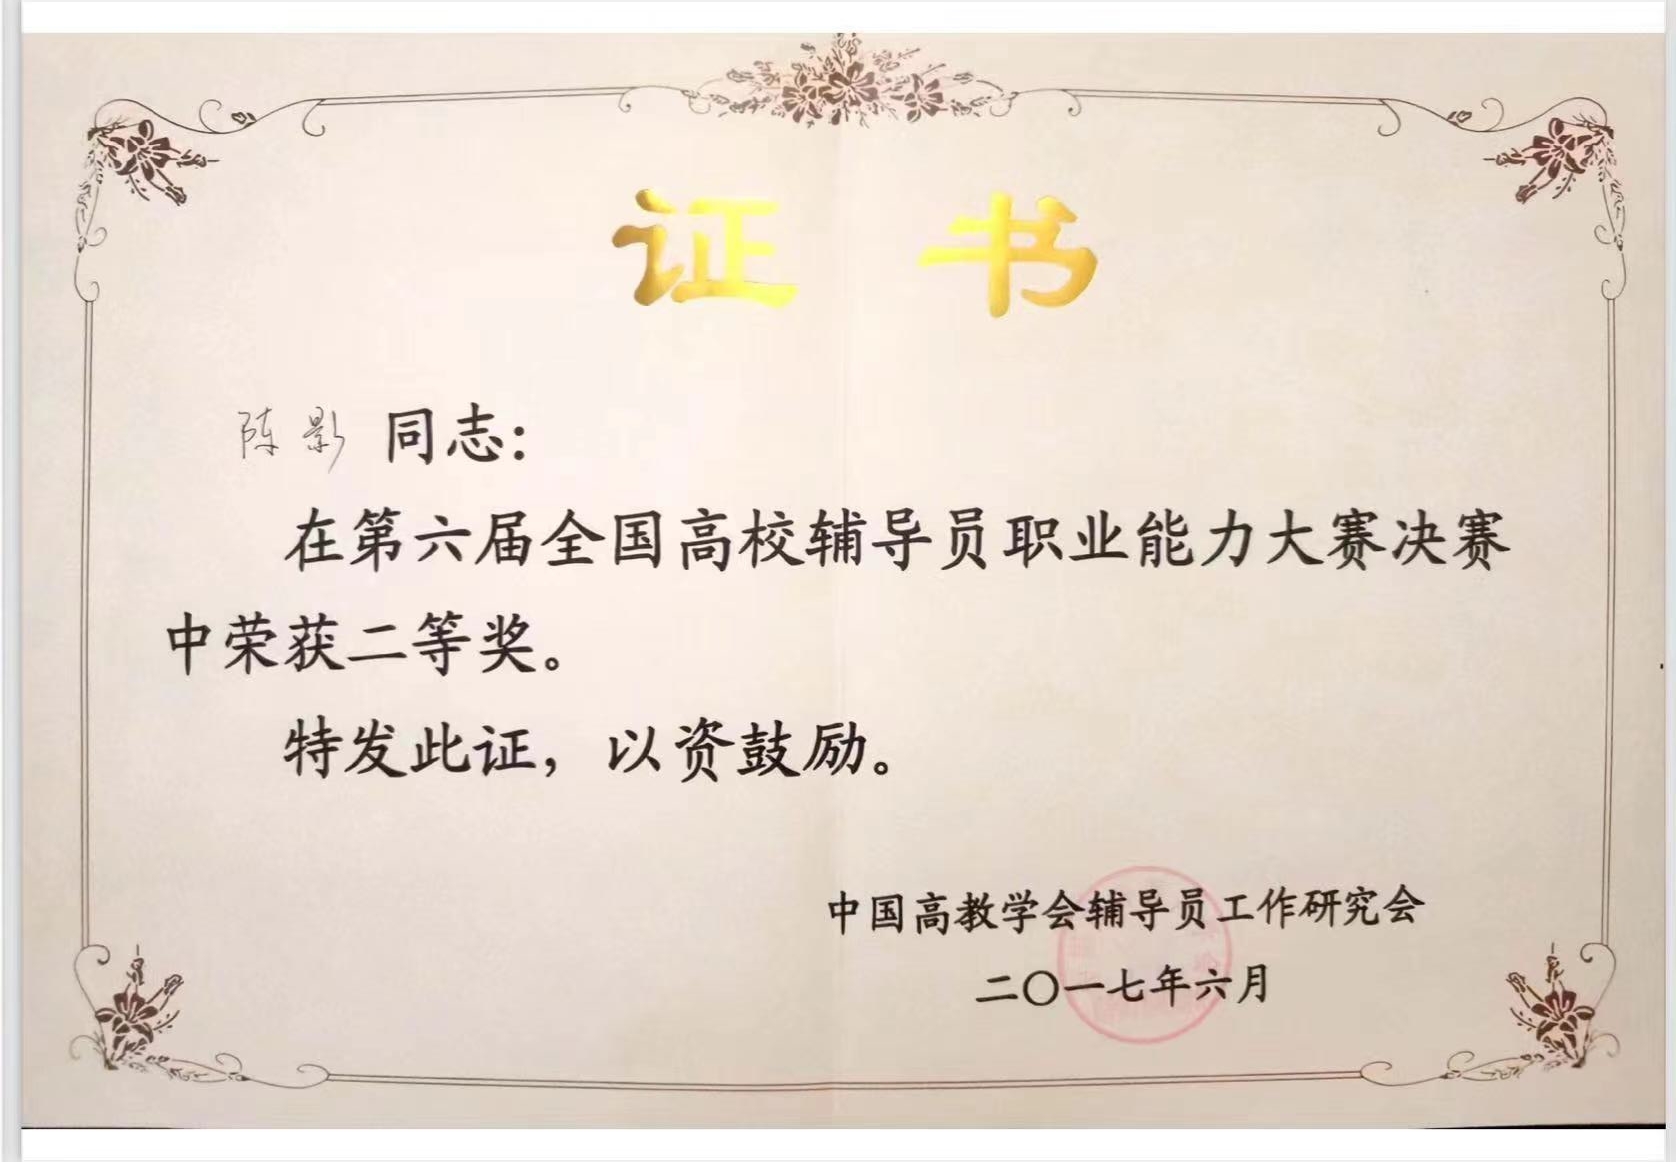 证书
陈影 同志：
在第六届全国高校辅导员职业能力大赛决赛
中荣获二等奖。
特发此证，以资鼓励。
中国高教学会辅导员工作研究会
二〇一七年六月